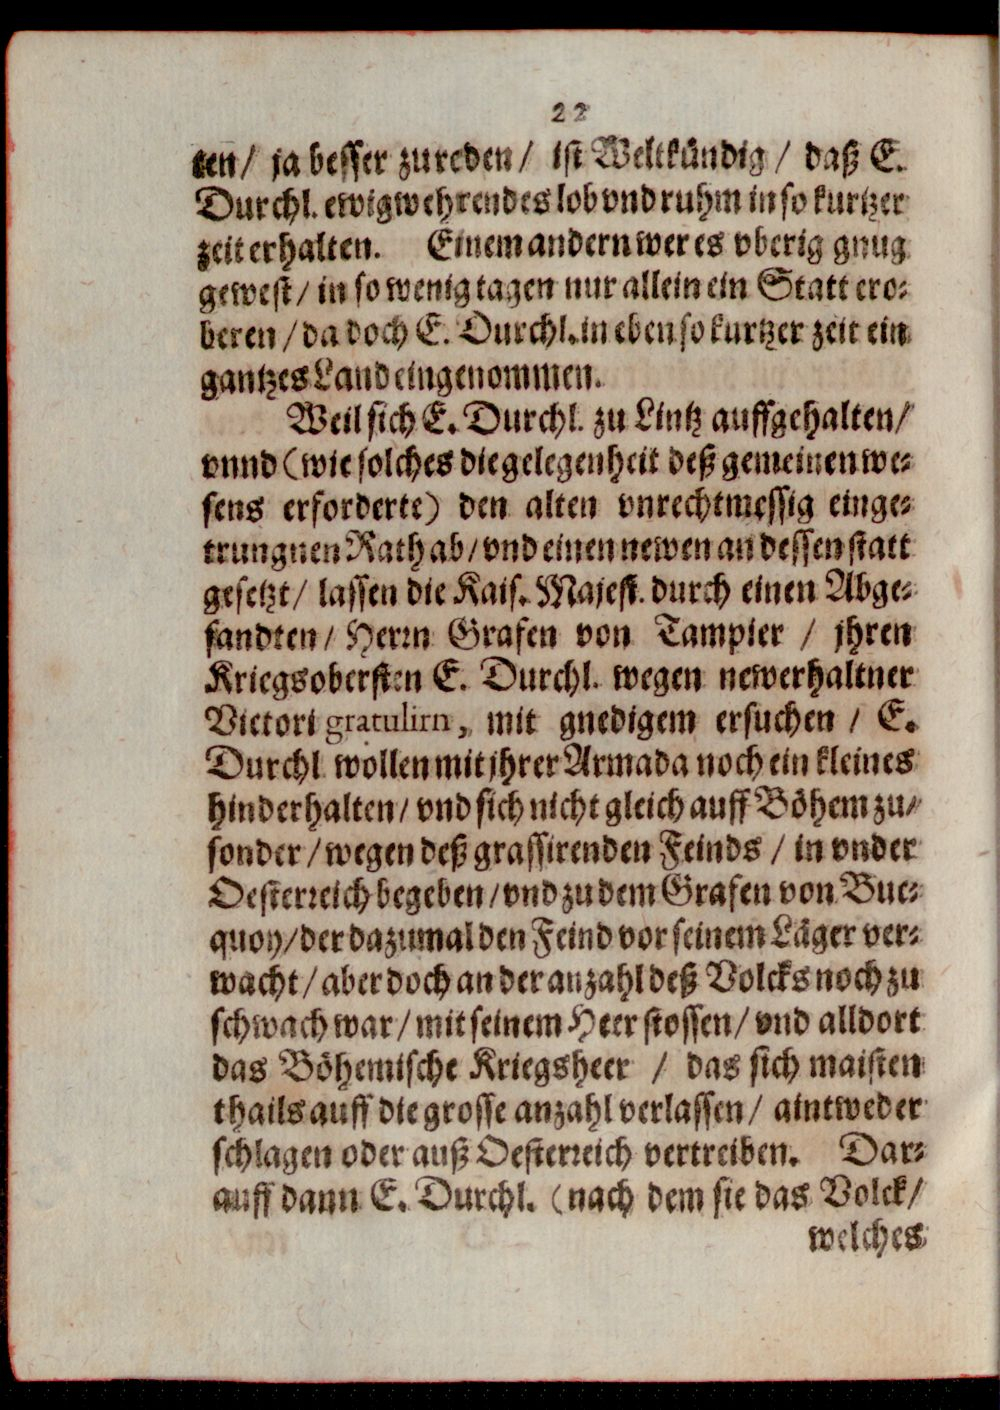 22
ten/ ja besser zureden/ ist Weltkündig/ daß E.
Durchl. ewigwehrendes lob vnd ruhm in so kurtzer
zeit erhalten. Einem andern wer es vberig gnug
gewest/ in so wenig tagen nur allein ein Statt ero-
beren/ da doch E. Durchl. in eben so kurtzer zeit ein
gantzes Land eingenommen.
Weil sich E. Durchl. zu Lintz auffgehalten/
vnnd (wie solches die gelegenheit deß gemeinen we-
sens erforderte) den alten vnrechtmessig einge-
trungnen Rath ab/ vnd einen newen an dessen statt
gesetzt/ lassen die Kais. Majest. durch einen Abge-
sandten/ Herrn Grafen von Tampier/ jhren
Kriegsobersten E. Durchl. wegen newerhaltner
Victori gratulirn, mit gnedigem ersuchen/ E.
Durchl wollen mit jhrer Armada noch ein kleines
hinderhalten/ vnd sich nicht gleich auff Böhem zu/
sonder/ wegen deß grassirenden Feinds/ in vnder
Oesterreich begeben/ vnd zu dem Grafen von Buc-
quoy/ der dazumal den Feind vor seinem Läger ver-
wacht/ aber doch an der anzahl deß Volcks noch zu
schwach war/ mit seinem Heer stossen/ vnd alldort
das Böhemische Kriegsheer/ das sich maisten
thails auff die grosse anzahl verlassen/ aintweder
schlagen oder auß Oesterreich vertreiben. Dar-
auff dann E. Durchl. (nach dem sie das Volck/
welches